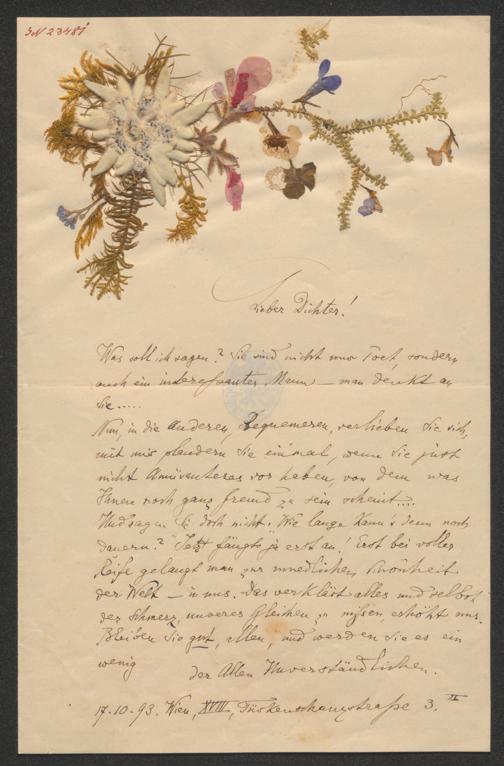 IN 23481
Lieber Dichter!
Was soll ich sagen? Sie sind nicht nur Poet, sondern
auch ein interessanter Mann – man denkt an
Sie.....
Nun, in die Anderen, Bequemeren, verlieben Sie sich,
mit mir plaudern Sie einmal, wenn Sie just
nicht Amüsanteres vor haben, von dem was
Ihnen noch ganz fremd zu sein scheint....
Und sagen Sie doch nicht: "Wie lange kann's denn noch
dauern?" Jetzt fängt's ja erst an! Erst bei voller
Reife gelangt man zur unendlichen Schönheit
der Welt – in uns. Das verklärt alles und selbst
der Schmerz, unseres Gleichen zu missen, erhöht uns.
Bleiben Sie gut, allen, und werden Sie es ein
wenig
der Allen Unverständlichen.
17.10.93. Wien, XVIII, Türkenschanzstraße 3. II